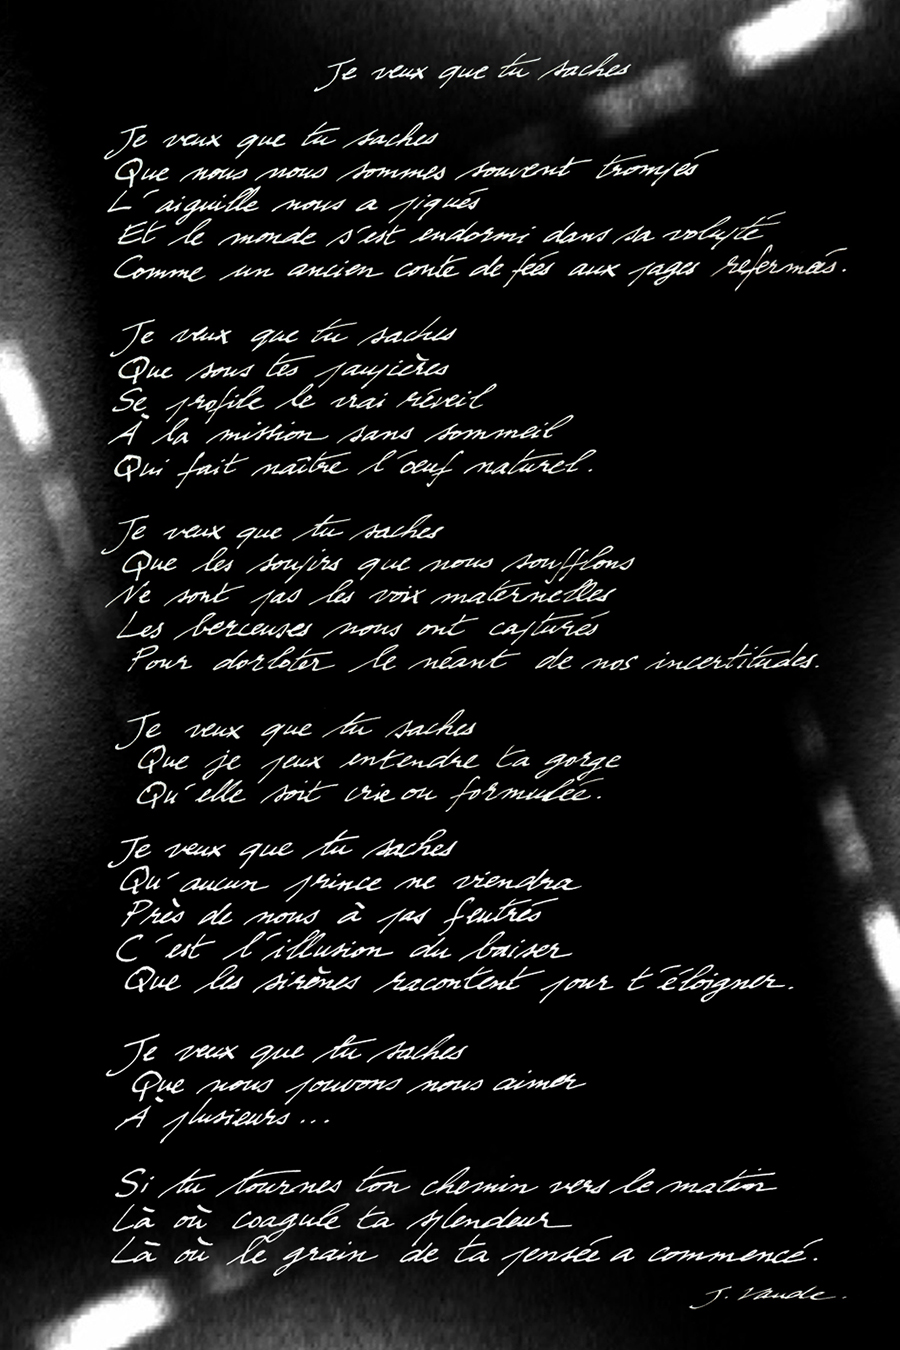 Je veux que tu saches
Je veux que tu saches
Que nous nous sommes souvent trompés
L'aiguille nous a piqués
Et le monde s'est endormi dans sa volupté
Comme un ancien conte de fées aux pages refermées.
Je veux que tu saches
Que sous tes paupières
Se profile le vrai réveil
À la mission sans sommeil
Qui fait naître l'œuf naturel.
Je veux que tu saches
Que les soupirs que nous soufflons
Ne sont pas les voix maternelles
Les berceuses nous ont capturés
Pour dorloter le néant de nos incertitudes.
Je veux que tu saches
Que je peux entendre ta gorge
Qu'elle soit crie ou formulée.
Je veux que tu saches
Qu'aucun prince ne viendra
Près de nous à pas feutrés
C'est l'illusion du baiser
Que les sirènes racontent pour t'éloigner.
Je veux que tu saches
Que nous pouvons nous aimer
À plusieurs...
Si tu tournes ton chemin vers le matin
Là où coagule ta splendeur
Là où le grain de ta pensée a commencé.
J. Vaude.